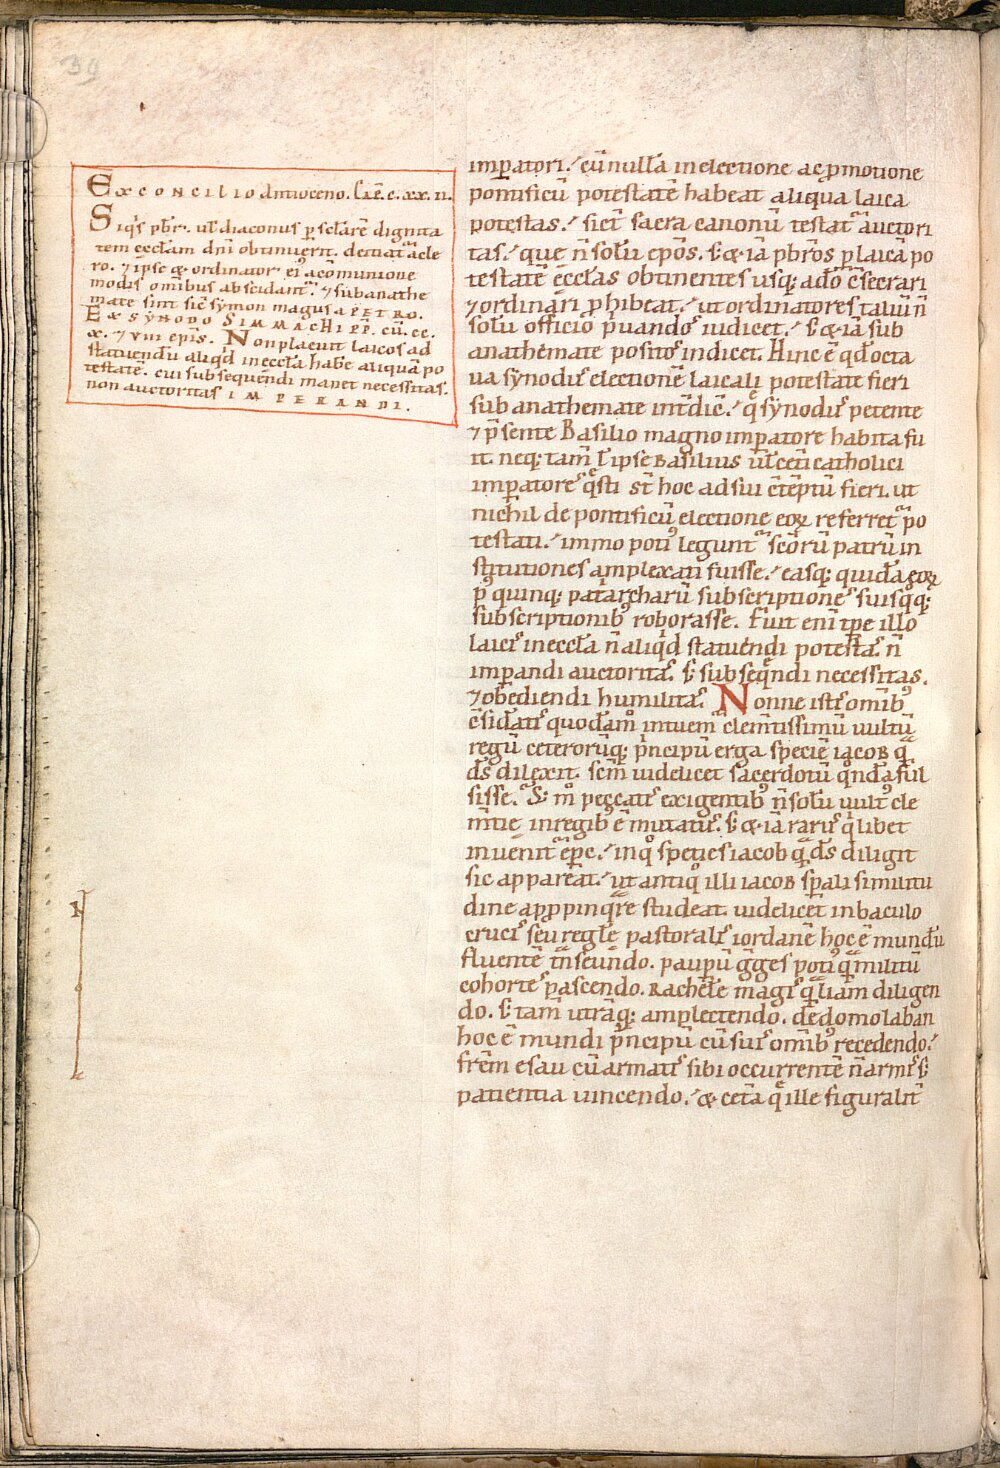 39
Ex concilio Antioceno. Lxē. c. xx. ii.
Siq̄s p̄br̄. ul̄ diaconus p̄ sc̄larē dignita
tem ęccl̄am dn̄i obtinuerit. deiciat᷑ a cle
ro. ⁊ ipse & ordinator ei᷒ a cōmunione
modis omībus abscidant᷑. ⁊ sub anathe
mate sint sic̄ symon magus a PETRO.
Ex synodo SIMMACHI PP. cū. cc.
x. ⁊ viii ep̄is. Non placuit laicos ad
statuendū aliq̇d in ęccl̄a habe᷑ aliquā po
testatē. cui subsequendi manet necessitas.
non auctoritas IMPERANDI.
imꝑatori. cū nulla in electione ac ꝓmotione
pontificū potestatē habeat aliqua laica
potestas. sic̄ sacra canonū testat᷑ auctori
tas. que n̄ solū ep̄os. s; & iā p̄br̄os ꝑ laicā po
testatē ęccl̄as obtinentes usq; adō c̄secrari
⁊ ordinari ꝓhibeat. ut ordinatores taliū n̄
solū officio p̄uandos iudicet. s; & iā sub
anathemate positos indicet. Hinc ē qd̄ octa
ua synodus electionē laicali potestate fieri
sub anathemate int̄dic̄. q̄ synodus petente
⁊ p̄sente Basilio magno imꝑatore habita fu
it. neq; tam̄ l ipse Basilius ul̄ cet̄i catholici
imꝑatores q̄sti st̄ hoc ad sui c̄teptū fieri. ut
nichil de pontificū electione eoꝝ referret᷑ po
testati. immo poti᷒ legunt᷑ sc̄orū patrū in
stitutiones amplexati fuisse. easq; quidā eoꝝ
p᷒ quinq; pat̄archarū subscriptiones suis q̊q;
subscriptionib᷒ roborasse. Fuit enī tp̄e illo
laicis in ęccl̄a n̄ aliq̇d statuendi potestas. n̄
imꝑandi auctoritas. s; subseq̄ndi necessitas.
⁊ obediendi humilitas. Nonne istis omīb᷒
c̄sidatis quodāmo intuem᷑ clem̄tissimū uultū
regū ceterorūq; p̄ncipū erga speciē iacob q̄
d̄s dilexit. sc̄m uidelicet sacerdotū q̊ndā ful
sisse. S; m̊ peccatis exigentib᷒ n̄ solū uult᷒ cle
m̄tię in regib᷒ ē mutatus. s; & iā rarus q̇libet
inuenit᷑ ep̄c. in q̊ species iacob q̄ d̄s diligit
sic appareat. ut antiq̊ illi iacob sp̄ali similitu
dine appropinq̄re studeat. uidelicet in baculo
crucis seu regulę pastoralis iordanē hoc ē mundū
fluentē t̄nseundo. pauꝑū g̊ges poti᷒ q̄ militū
cohortes pascendo. Rachelē magis q̄ liam diligen
do. s; tam̄ utrāq; amplectendo. de domo laban
hoc ē mundi p̄ncipū cū suis omīb᷒ recedendo.
fr̄em esau cū armatis sibi occurrentē n̄ armis s;
patientia uincendo. & cet̄a q̄ ille figuralit᷑